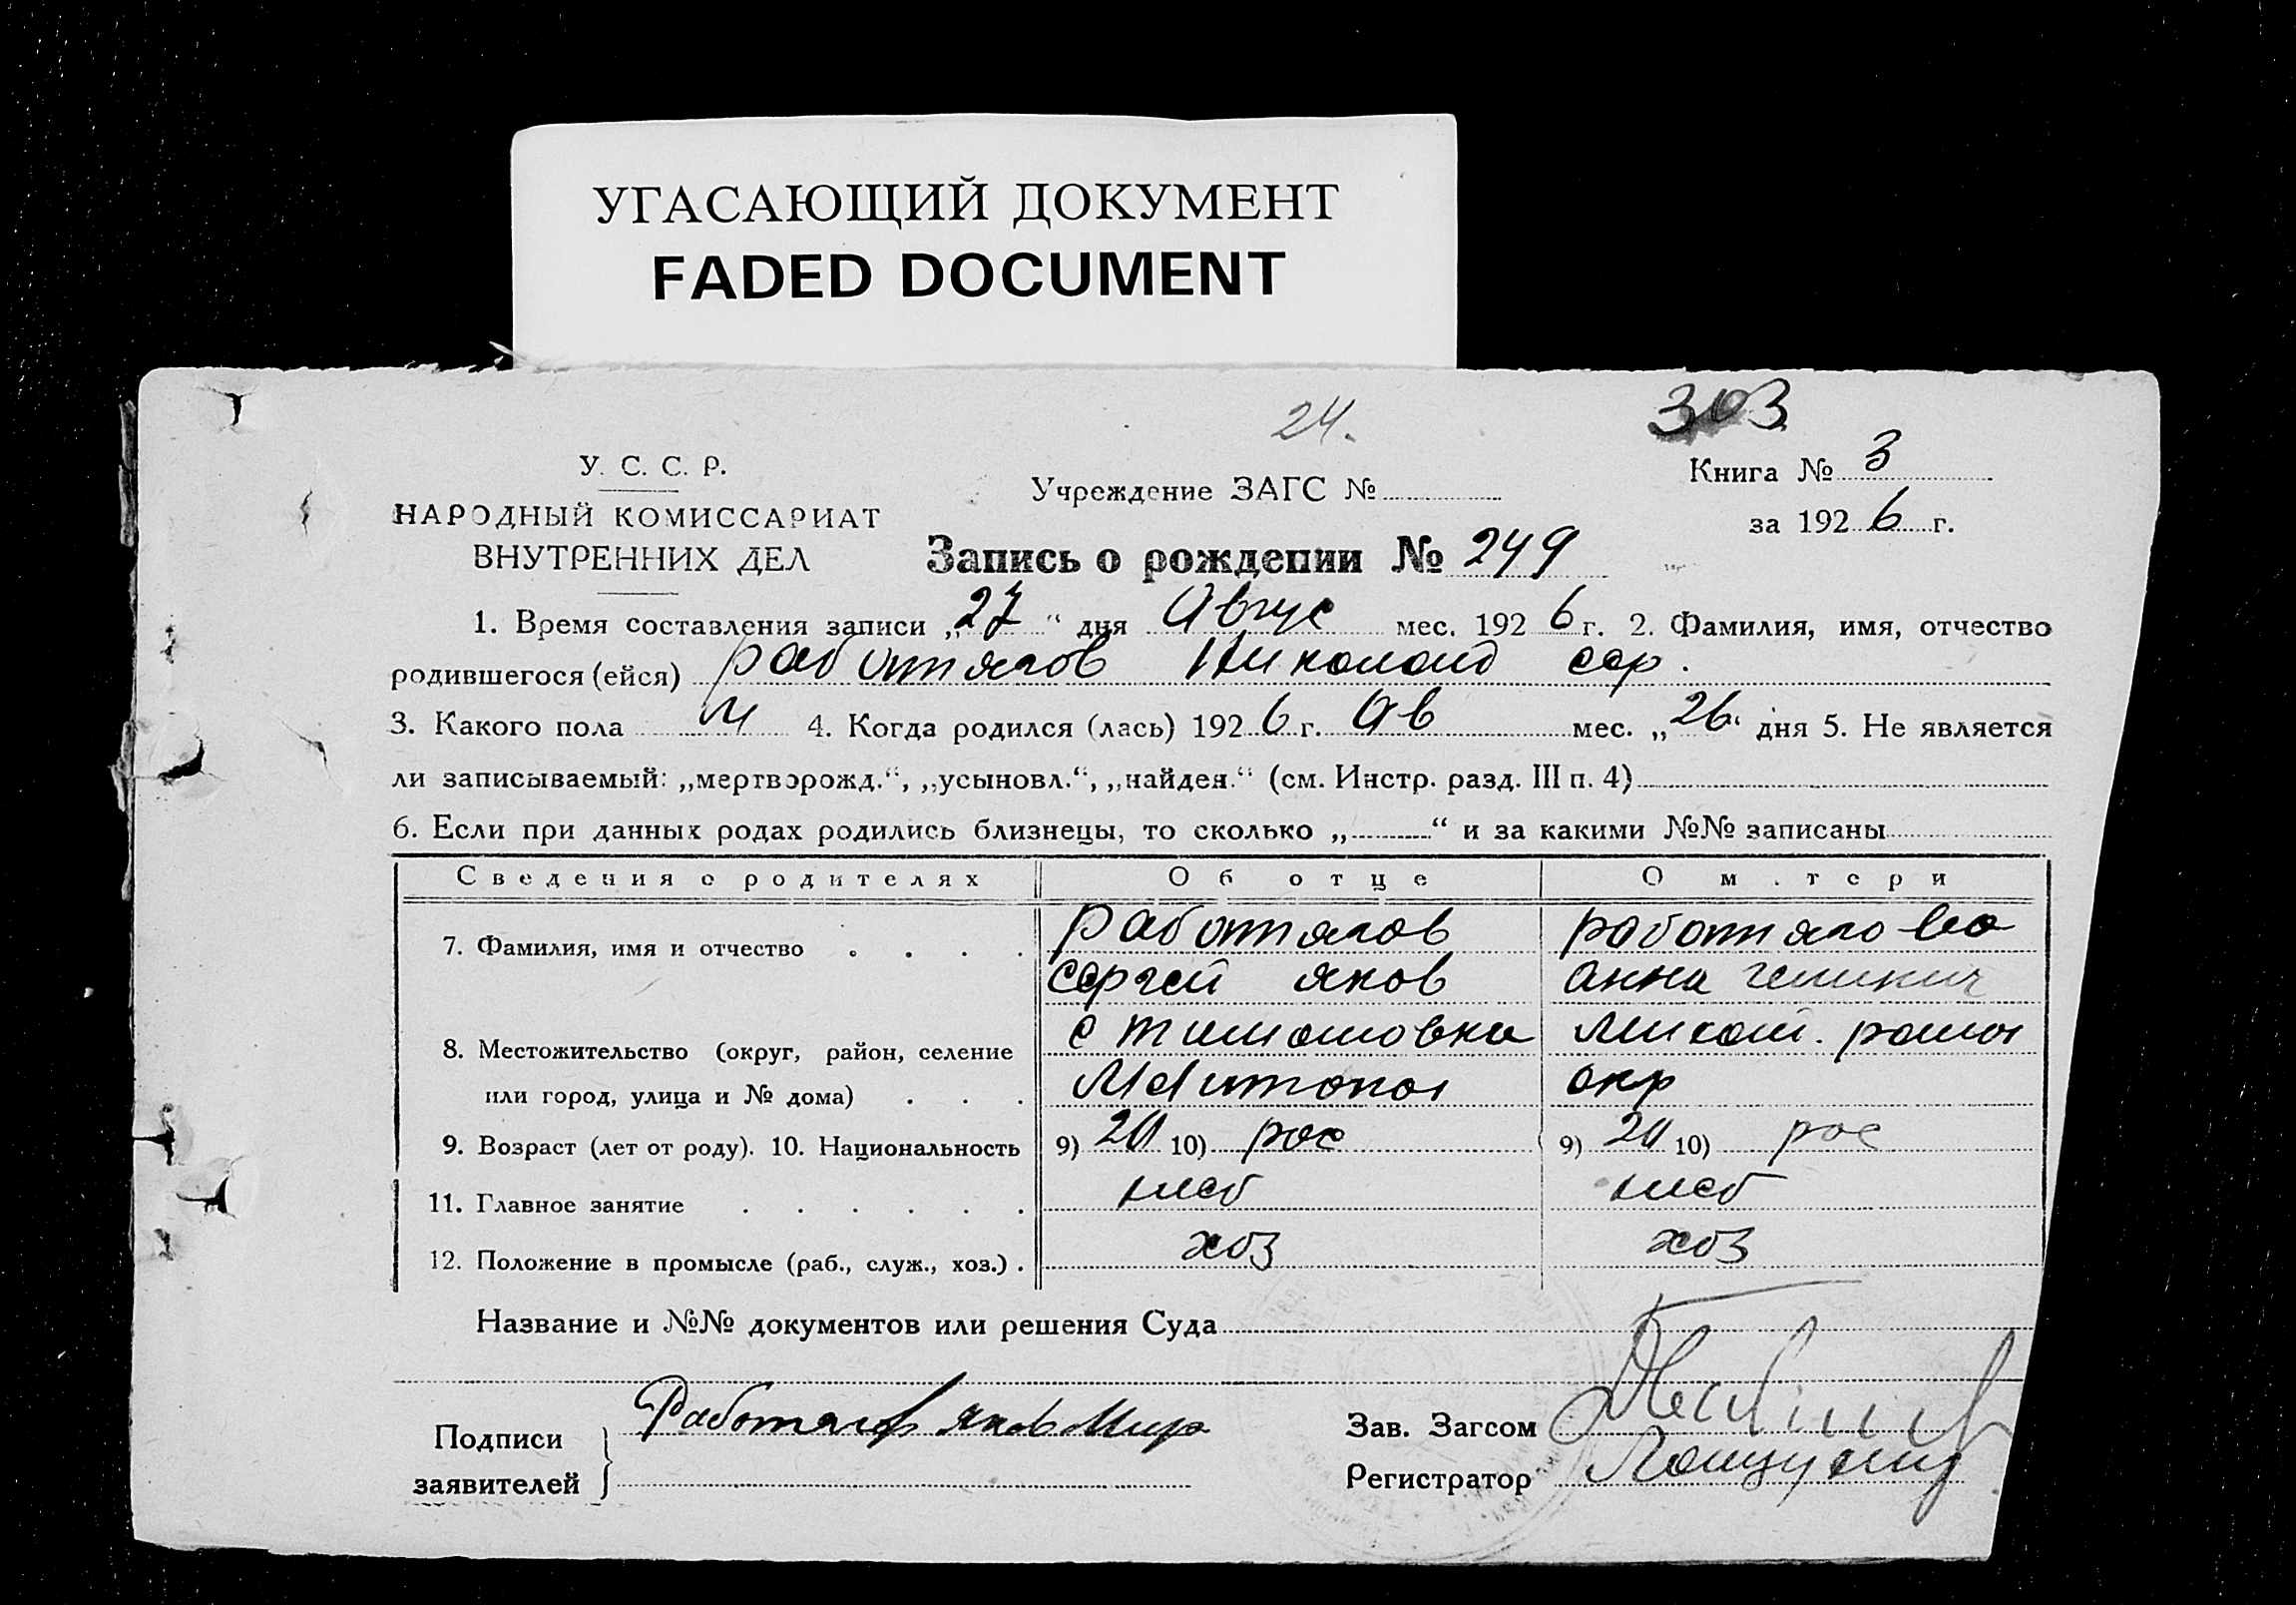 УГАСАЮЩИЙ ДОКУМЕНТ
FADED DOCUMENT
24.
303
У. С. С. Р.
НАРОДНЫЙ КОМИССАРИАТ
ВНУТРЕННИХ ДЕЛ
Учреждение ЗАГС №
Книга № 3
за 1926 г.
Запись о рождении № 249
1. Время составления записи „27“ дня Авгус мес. 1926 г. 2. Фамилия, имя, отчество
родившегося (ейся) работягов Николай сер.
3. Какого пола м 4. Когда родился (лась) 1926 г. Ав мес. „26“ дня 5. Не является
ли записываемый: „мертворожд.“, „усыновл.“, „найден.“ (см. Инстр. разд. III п. 4)
6. Если при данных родах родились близнецы, то сколько „ “ и за какими №№ записаны
Сведения о родителях Об отце О м.тери
7. Фамилия, имя и отчество работягов работягова
сергей яков анна
8. Местожительство (округ, район, селение с тимошовка
или город, улица и № дома) окр
9. Возраст (лет от роду). 10. Национальность 9) 20 10) рос 9) 20 10) рос
11. Главное занятие хлеб хлеб
12. Положение в промысле (раб., служ., хоз.) хоз хоз
Название и №№ документов или решения Суда
Подписи заявителей Работягов яков
Зав. Загсом
Регистратор